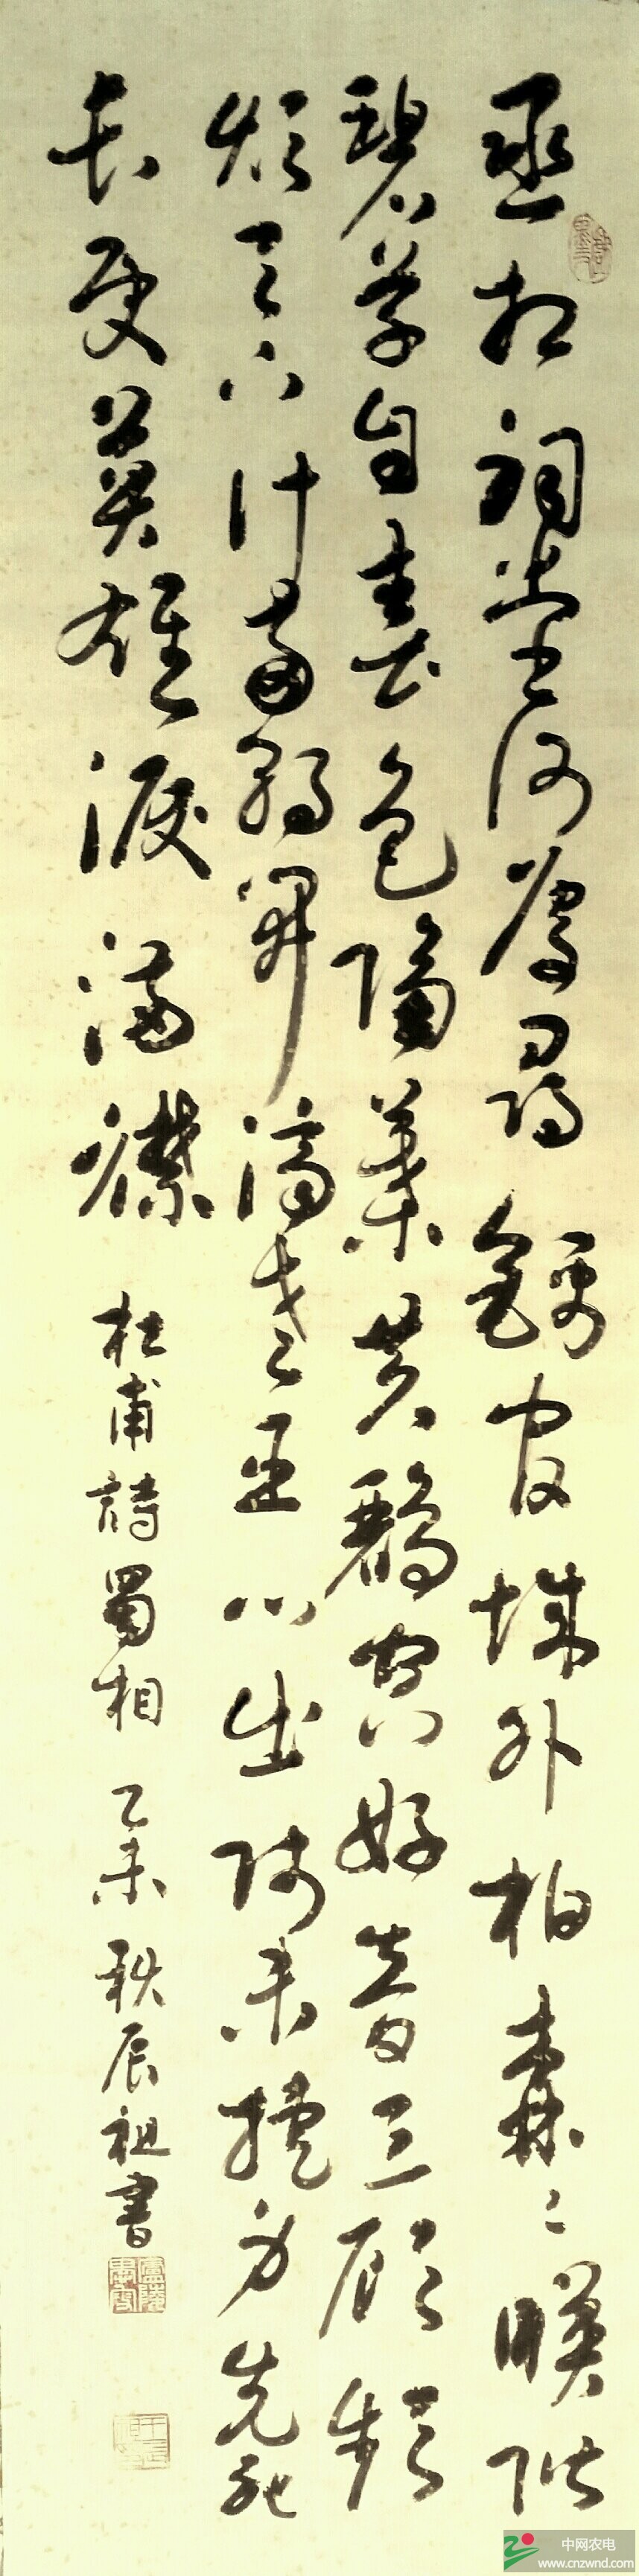 丞相祠堂何處尋錦官城外柏森〻暎階
碧草自春色隔葉黄鸝空好音三顧頻
煩天下計兩朝開濟老臣心出師未捷身先死
長使英雄淚滿襟 杜甫詩蜀相 乙未秋辰祖書
中网农电
www.cnzwnd.com